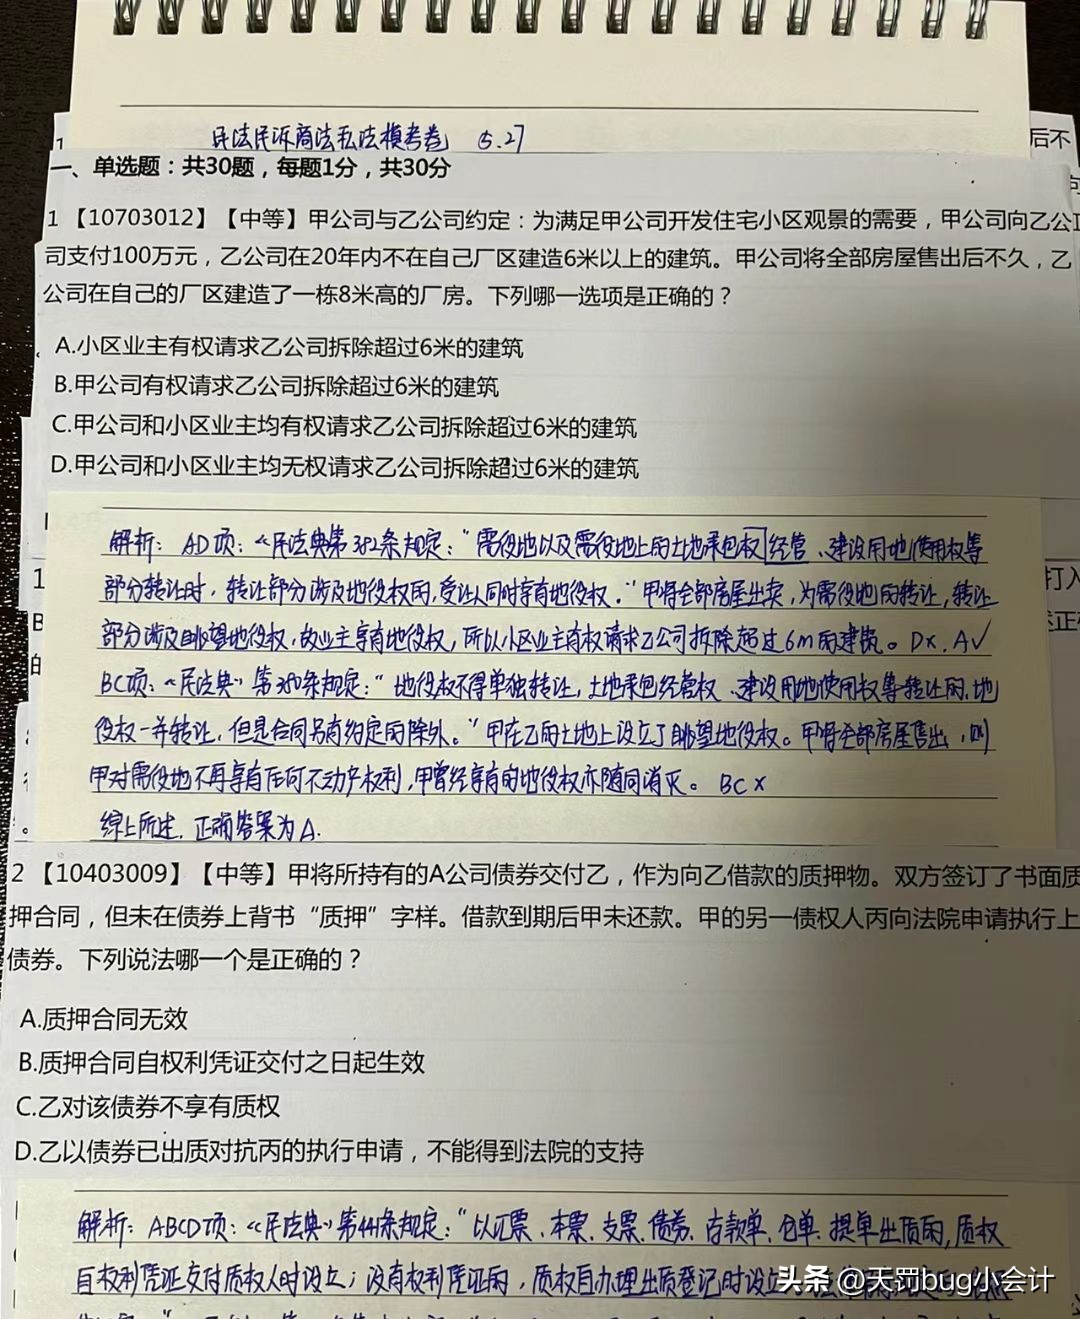 民法民诉商法私法模考卷 5.27
后不
一、单选题：共30题，每题1分，共30分
1 【10703012】【中等】甲公司与乙公司约定：为满足甲公司开发住宅小区观景的需要，甲公司向乙公
司支付100万元，乙公司在20年内不在自己厂区建造6米以上的建筑。甲公司将全部房屋售出后不久，乙
公司在自己的厂区建造了一栋8米高的厂房。下列哪一选项是正确的？
A.小区业主有权请求乙公司拆除超过6米的建筑
B.甲公司有权请求乙公司拆除超过6米的建筑
C.甲公司和小区业主均有权请求乙公司拆除超过6米的建筑
D.甲公司和小区业主均无权请求乙公司拆除超过6米的建筑
解析：AD项：《民法典》第382条规定："需役地以及需役地上的土地承包权经营、建设用地使用权等
部分转让时，转让部分涉及地役权的，受让人同时享有地役权。"甲将全部房屋出卖，为需役地的转让，转让
部分涉及眺望地役权，故业主享有地役权，所以小区业主有权请求乙公司拆除超过6m的建筑。D×，A✓
BC项：《民法典》第380条规定："地役权不得单独转让，土地承包经营权、建设用地使用权等转让的，地
役权一并转让，但是合同另有约定的除外。"甲在乙的土地上设立了眺望地役权。甲将全部房屋售出，则
甲对需役地不再享有任何不动产权利，甲曾经享有的地役权亦随同消灭。BC×
综上所述，正确答案为A.
打入
1
B
的
2 【10403009】【中等】甲将所持有的A公司债券交付乙，作为向乙借款的质押物。双方签订了书面质
押合同，但未在债券上背书“质押”字样。借款到期后甲未还款。甲的另一债权人丙向法院申请执行上
债券。下列说法哪一个是正确的？
A.质押合同无效
B.质押合同自权利凭证交付之日起生效
C.乙对该债券不享有质权
D.乙以债券已出质对抗丙的执行申请，不能得到法院的支持
解析：ABCD项：《民法典》第441条规定："以汇票、本票、支票、债券、存款单、仓单、提单出质的，质权
自权利凭证交付质权人时设立；没有权利凭证的，质权自办理出质登记时设立
头条 @天罚bug小会计